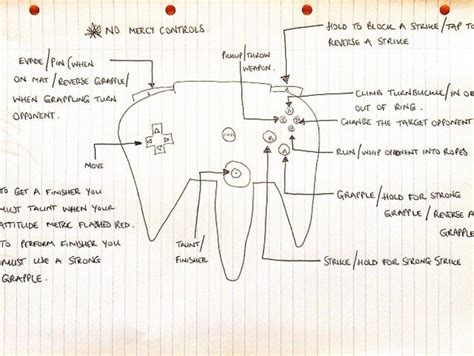 NO MERCY CONTROLS.
HOLD TO BLOCK A STRIKE/TAP TO
REVERSE A STRIKE
EVADE/PIN (WHEN
ON MAT/REVERSE GRAPPLE/
WHEN GRAPPLING TURN
OPPONENT.
PICKUP/THROW
WEAPON.
CLIMB TURNBUCKLE/IN OR
OUT OF RING.
CHANGE THE TARGET OPPONENT
RUN/WHIP OPPONENT INTO ROPES
GRAPPLE/HOLD FOR STRONG
GRAPPLE/REVERSE A
GRAPPLE
STRIKE/HOLD FOR STRONG STRIKE
MOVE
TAUNT/
FINISHER
TO GET A FINISHER YOU
MUST TAUNT WHEN YOUR
ATTITUDE METRE FLASHED RED.
TO PERFORM FINISHER YOU
MUST USE A STRONG
GRAPPLE.
L
R
B
A